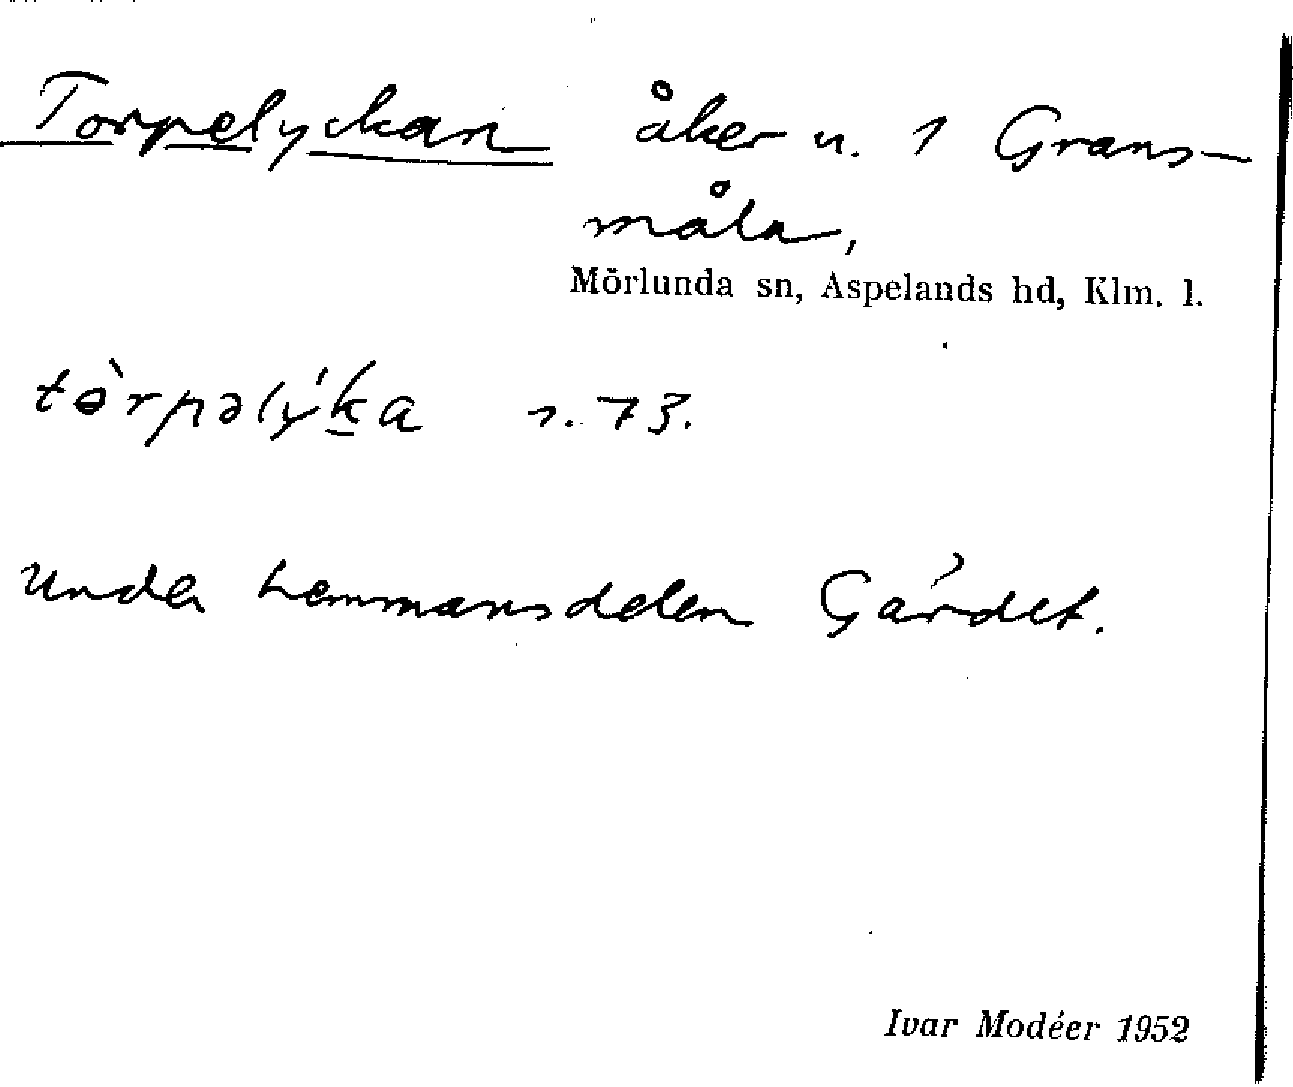 Torpelyckan åker u. 1 Grans-
måla,
Mörlunda sn, Aspelands hd, Klm. l.
tɵ̀rpəlýk̲a r. 73.
Under hemmansdelen Gårdet.
Ivar Modéer 1952